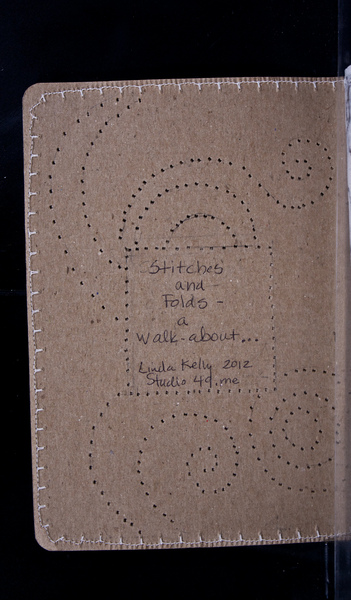 Stitches
and -
Folds -
a
walk-about...
Linda Kelly 2012
Studio 49.me